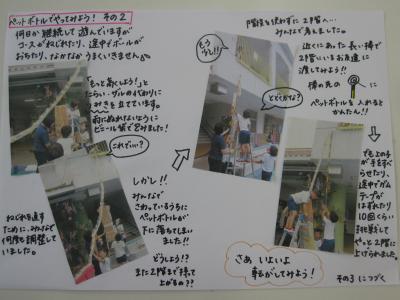 ペットボトルでやってみよう！ その2
何日か継続して遊んでいますが
コースがねじれたり、途中でボールが
おちたり、なかなかうまくいきません。
「もっと高くしよう！」と
つみきを立てています。
雨にぬれないように
ビニール紙で包みました！
これでいい？
ねじれを直す
ために、みんなで
何度も調整し
ていました。
しかし！！
みんなで
さわっているうちに
ペットボトルが
下に落ちてしまい
ました！！
どうしよう！？
また2階まで持って
上がるの？？
階段を使わずに2階へ…
みんなで考えました。
近くにあった長い棒で
2階にいるお友達に
渡してみよう！！
棒の先の
ペットボトルを入れると
かんたん！！
もう少し！！
とどくかな？
でも上の子
が手をすべ
らせたり、
途中でガム
テープが
はずれたり
10回くらい
挑戦して
やっと2階に
上げられました。
さあ いよいよ
転がしてみよう！
その3につづく